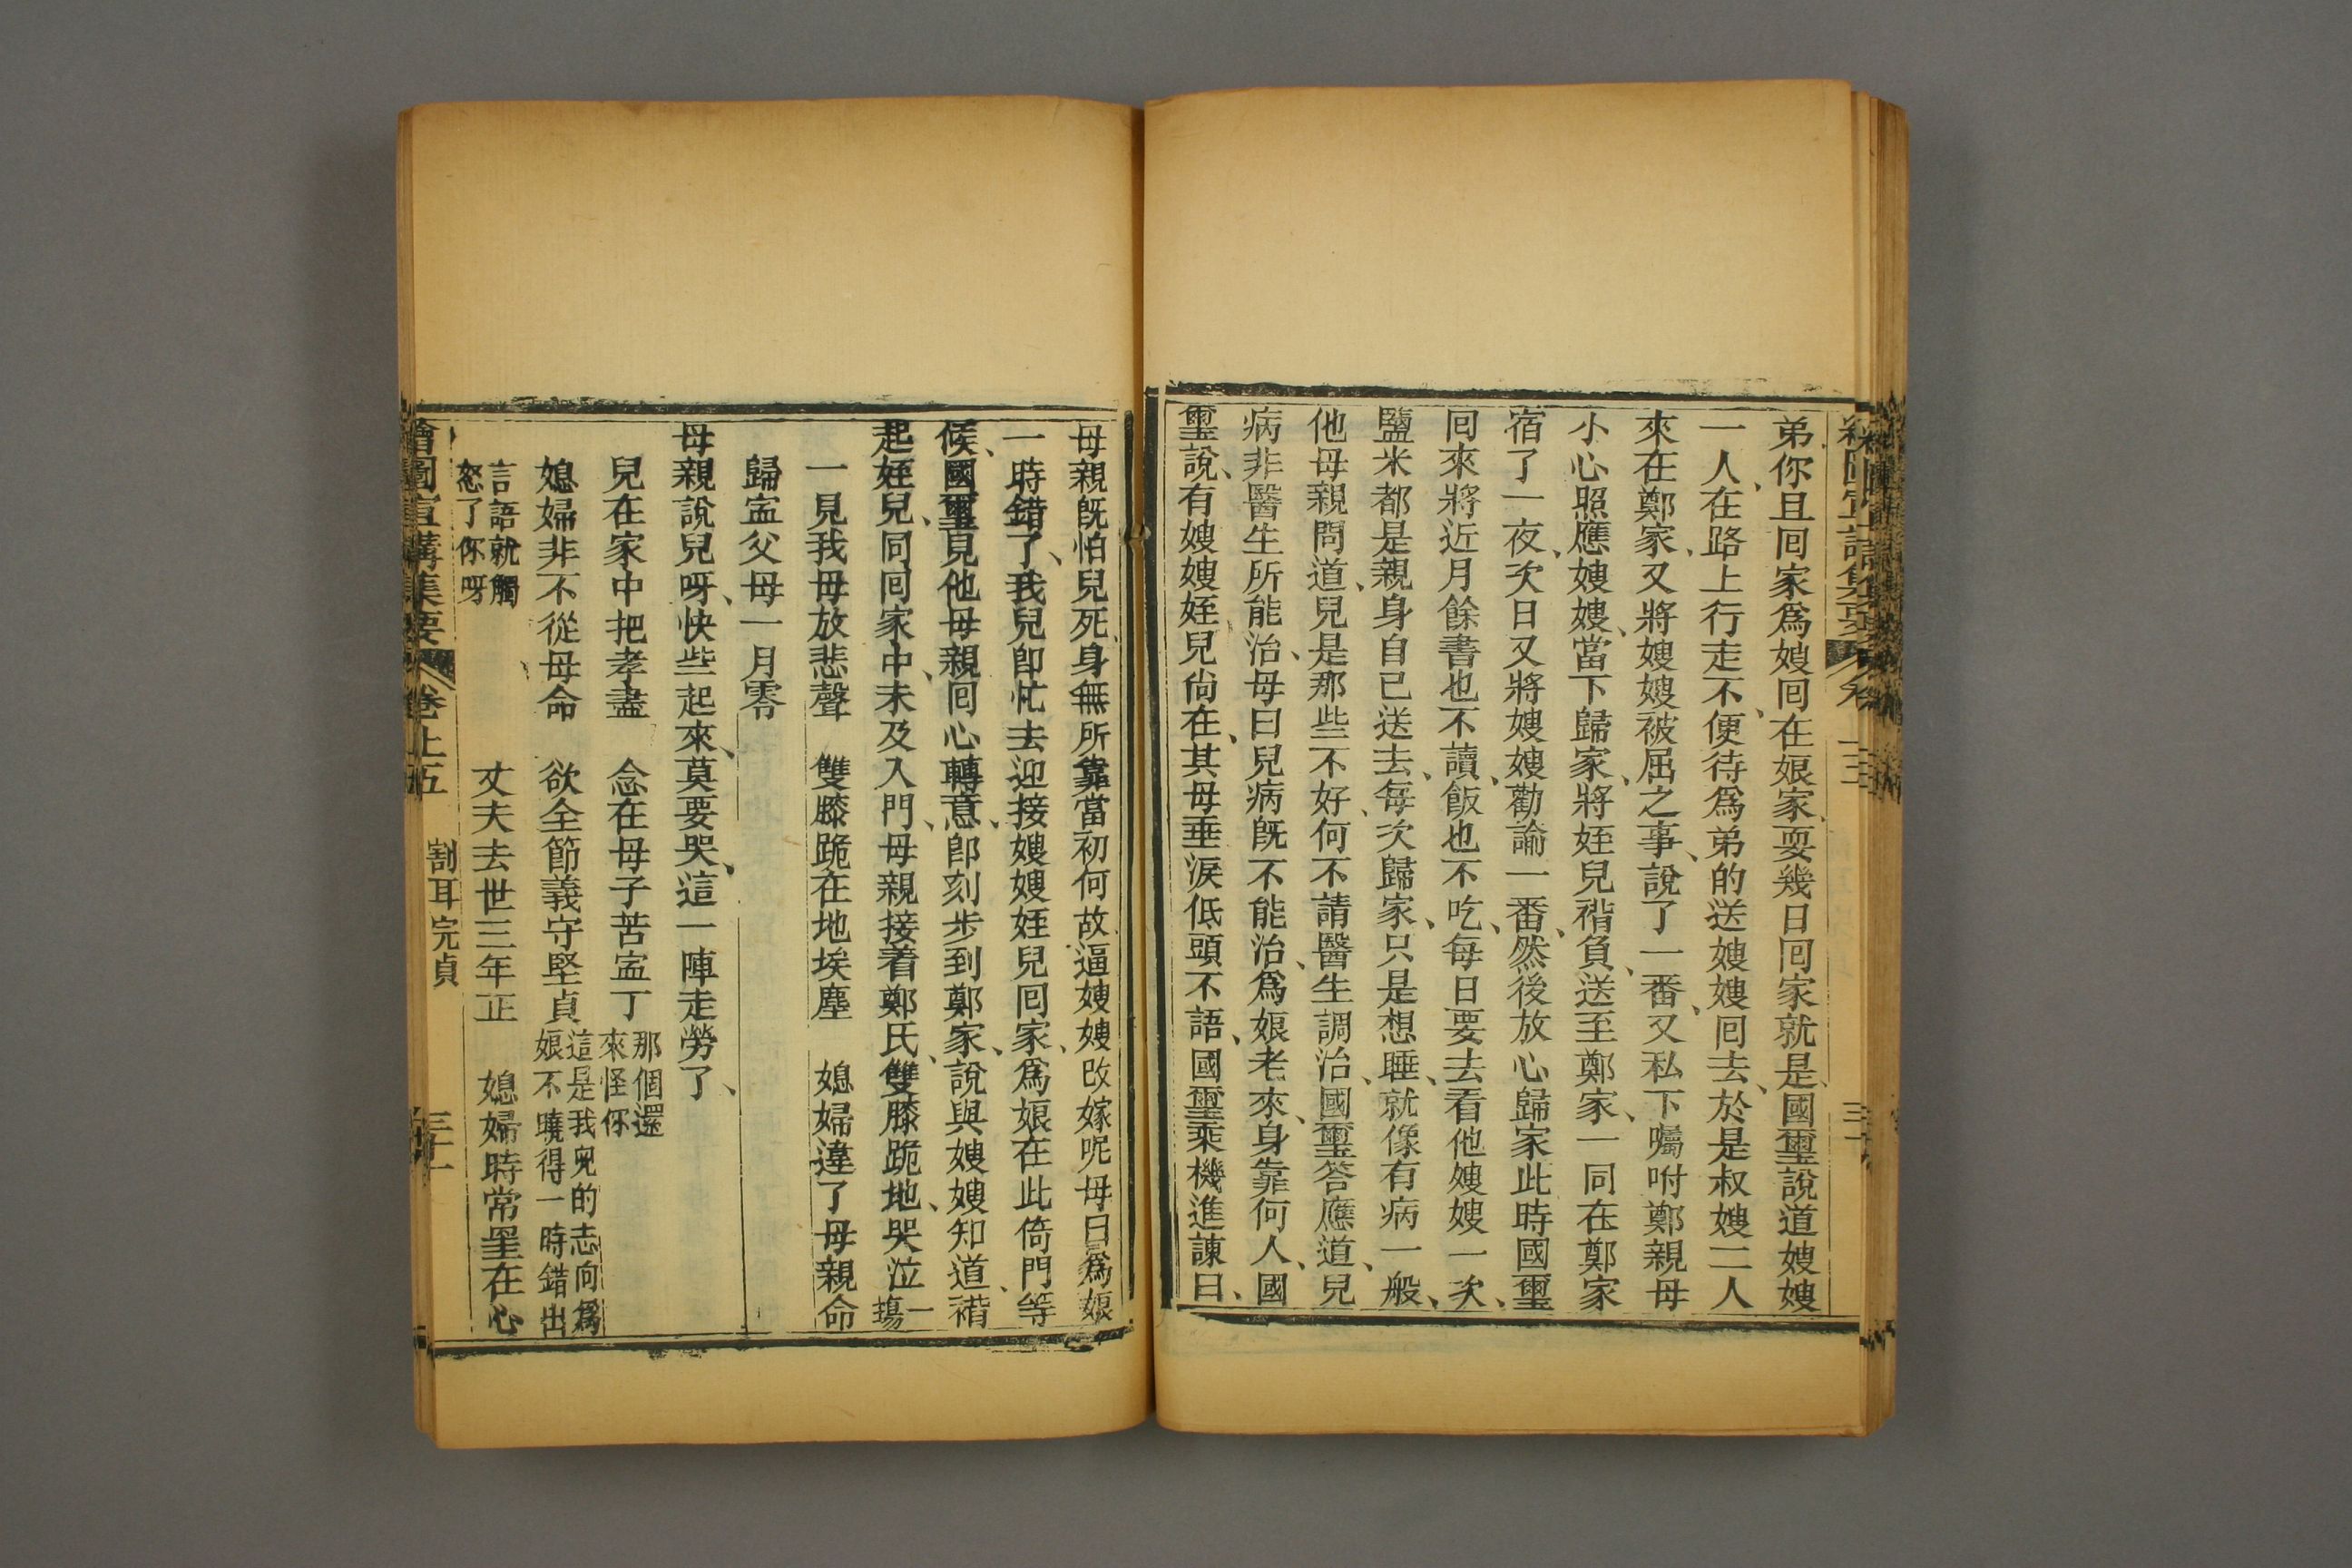 弟你且囘家爲娘囘在娘家耍幾日囘家就是國璽說道嫂嫂
一人在路上行走不便待爲弟的送嫂嫂囘去於是叔嫂二人
來在鄭家又將嫂嫂被屈之事說了一番又私下囑咐鄭親母
小心照應嫂嫂當下歸家將姪兒褙負送至鄭家一同在鄭家
宿了一夜次日又將嫂嫂勸諭一番然後放心歸家此時國璽
囘來將近月餘書也不讀飯也不吃每日要去看他嫂嫂一次
鹽米都是親身自已送去每次歸家只是想睡就像有病一般
他母親問道兒是那些不好何不請醫生調治國璽答應道兒
病非醫生所能治母曰兒病既不能治爲娘老來身靠何人國
璽說有嫂嫂姪兒尙在其母垂淚低頭不語國璽乘機進諫曰
母親旣怕兒死身無所靠當初何故逼嫂嫂改嫁呢母曰爲娘
一時錯了我兒卽忙去迎接嫂嫂姪兒囘家爲娘在此倚門等
候國璽見他母親囘心轉意卽刻步到鄭家說與嫂嫂知道褙
起姪兒同囘家中未及入門母親接着鄭氏雙膝跪地哭泣一塲
一見我母放悲聲 雙膝跪在地埃塵 媳婦違了母親命
歸寍父母一月零
母親說兒呀快些起來莫要哭這一陣走勞了
兒在家中把孝盡 念在母子苦寍丁 那個還來怪你
媳婦非不從母命 欲全節義守堅貞 這是我兒的志向爲娘不曉得一時錯出
言語就觸怒了你呀 丈夫去世三年正 媳婦時常罣在心
繪圖宣講集要 卷上五 割耳完貞 三十一